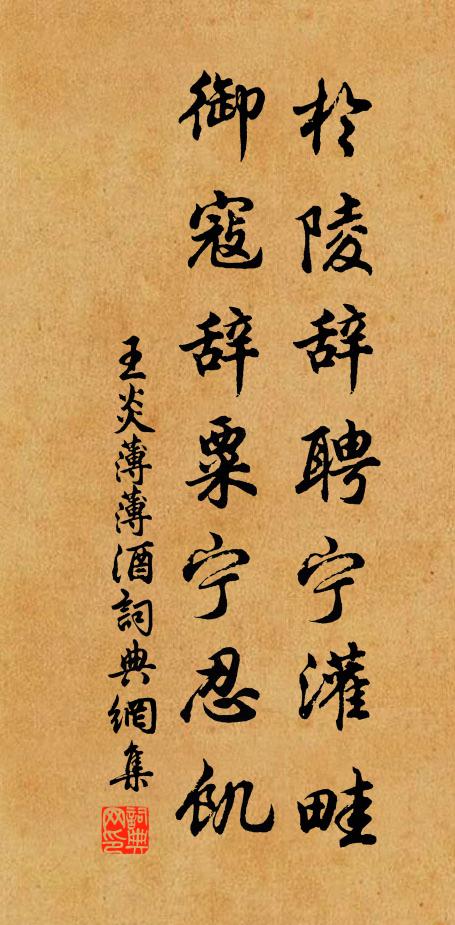 於陵辞聘宁灌畦
御寇辞粟宁忍飢
王炎薄薄酒詞典網集
詞典網印